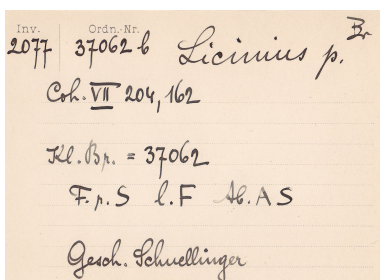 Inv. Ordn.-Nr. Br
2077 37062 b Licinius p.
Coh. VII 204, 162
Kl. Br. = 37062
F. r. S l. F Ab. A S
Gesch. Schnellinger